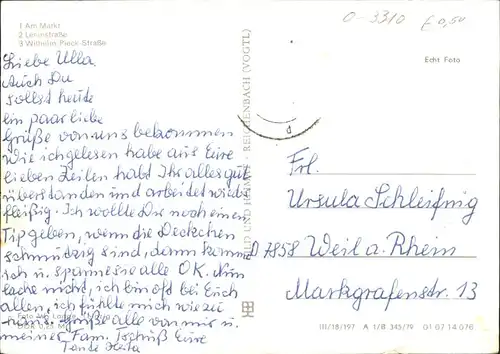 1 Am Markt
2 Leninstraße
3 Wilhelm-Pieck-Straße
Liebe Ulla
Auch Du
sollst heute
ein paar liebe
Grüße von uns bekommen
Wie ich gelesen habe aus Eire
lieben Zeilen habt Ihr alles gut
überstanden und arbeitet wieder
fleißig. Ich wollte Dir noch einen
Tip geben, wenn die Deckchen
schmutzig sind, dann komme
ich u. spann sie alle OK. Nun
lache nicht, ich bin oft bei Euch
allen, ich fühlte mich wie zu
Grüße alle von mir u.
meiner Fam. Tschüß Eire
Tante
BILD UND HEIMAT REICHENBACH (VOGTL)
0-3310
€ 0,50
Echt Foto
Frl.
Ursula Schleifnig
D 7858 Weil a. Rhein
Markgrafenstr. 13
III/18/197 A 1/B 345/79 01 07 14 076